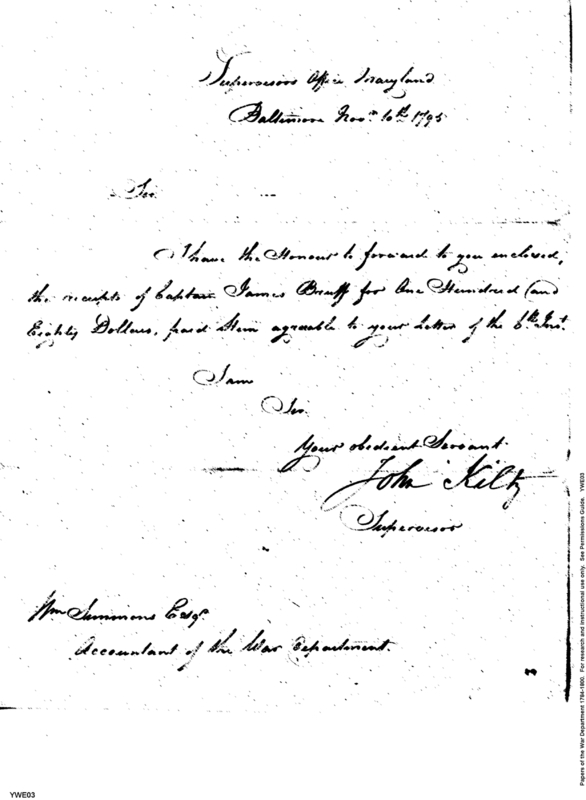 Supervisors Office Maryland
Baltimore Nov.r 10th 1795
Sir
I have the Honour to forward to you enclosed,
the receipts of Captain James Bruff for One Hundred and
Eighty Dollars, paid Him agreable to your Letter of the 6th Inst.
I am
Sir
Your obedient Servant
John Kilty
Supervisor
Wm Simmons Esqr.
Accountant of the War Department.
Papers of the War Department 1784-1800. For research and instructional use only. See Permissions Guide. YWE03
YWE03